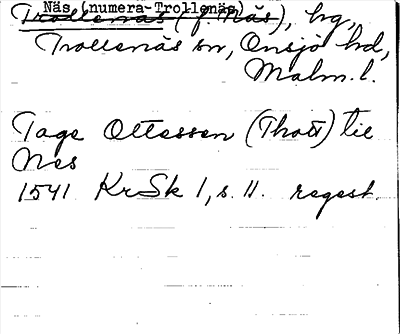 Näs (numera Trollenäs)
Trollenäs (f. Näs), hg,
Trollenäs sn, Onsjö hd,
Malm. l.
Tage Ottessen (Thott) til
Nes
1541 KrSk 1, s. 11. regest.